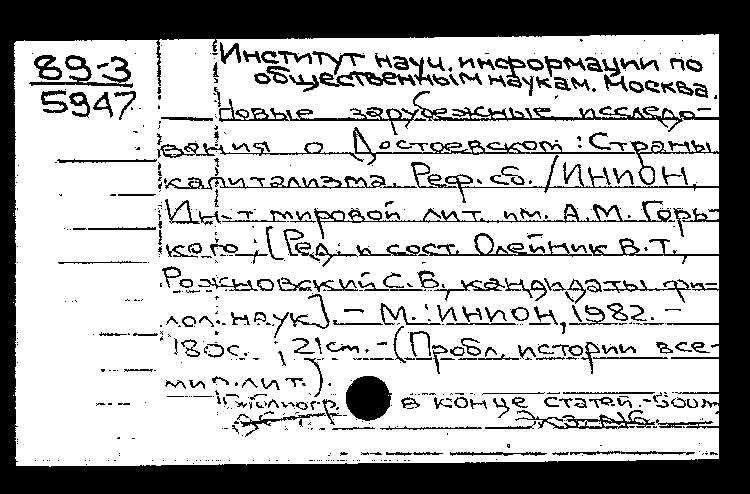 89-3
5947
Институт науч. информации по
общественным наукам. Москва.
Новые зарубежные исследо-
вания о Достоевском : Страны
капитализма. Реф. сб. / ИНИОН,
Ин-т мировой лит. им. А.М. Горь-
кого ; [Ред. и сост. Олейник В.Т.,
Рожновский С.В., кандидаты фи-
лол. наук]. - М. : ИНИОН, 1982. -
180с. ; 21см. - (Пробл. истории все-
мир. лит.).
Библиогр. в конце статей. - 500